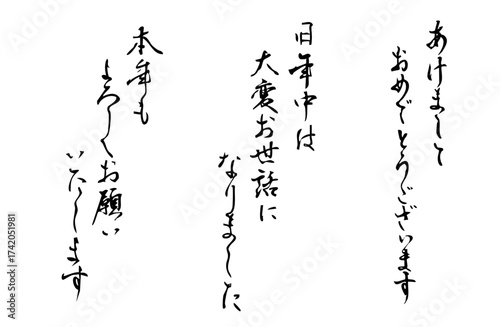 あけまして
おめでとうございます
旧年中は
大変お世話に
なりました
本年も
よろしくお願い
いたします
Adobe Stock | #1742051981
Adobe Stock